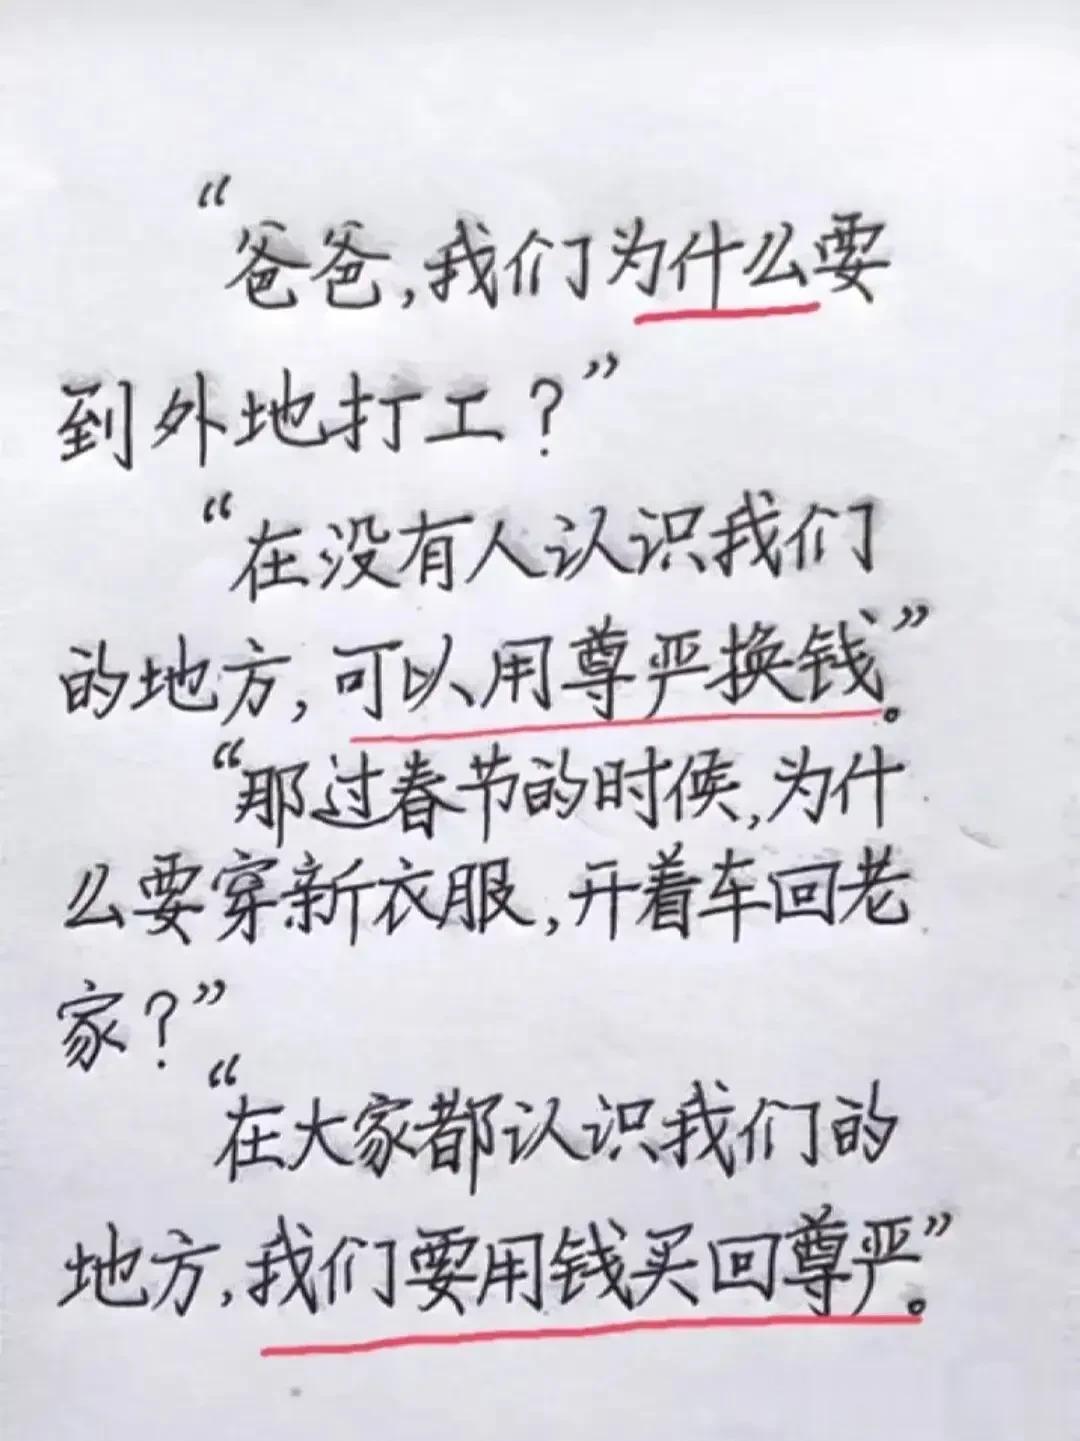 “爸爸,我们为什么要
到外地打工?”
“在没有人认识我们
的地方,可以用尊严换钱”。
“那过春节的时候,为什
么要穿新衣服,开着车回老
家?”
“在大家都认识我们的
地方,我们要用钱买回尊严”。